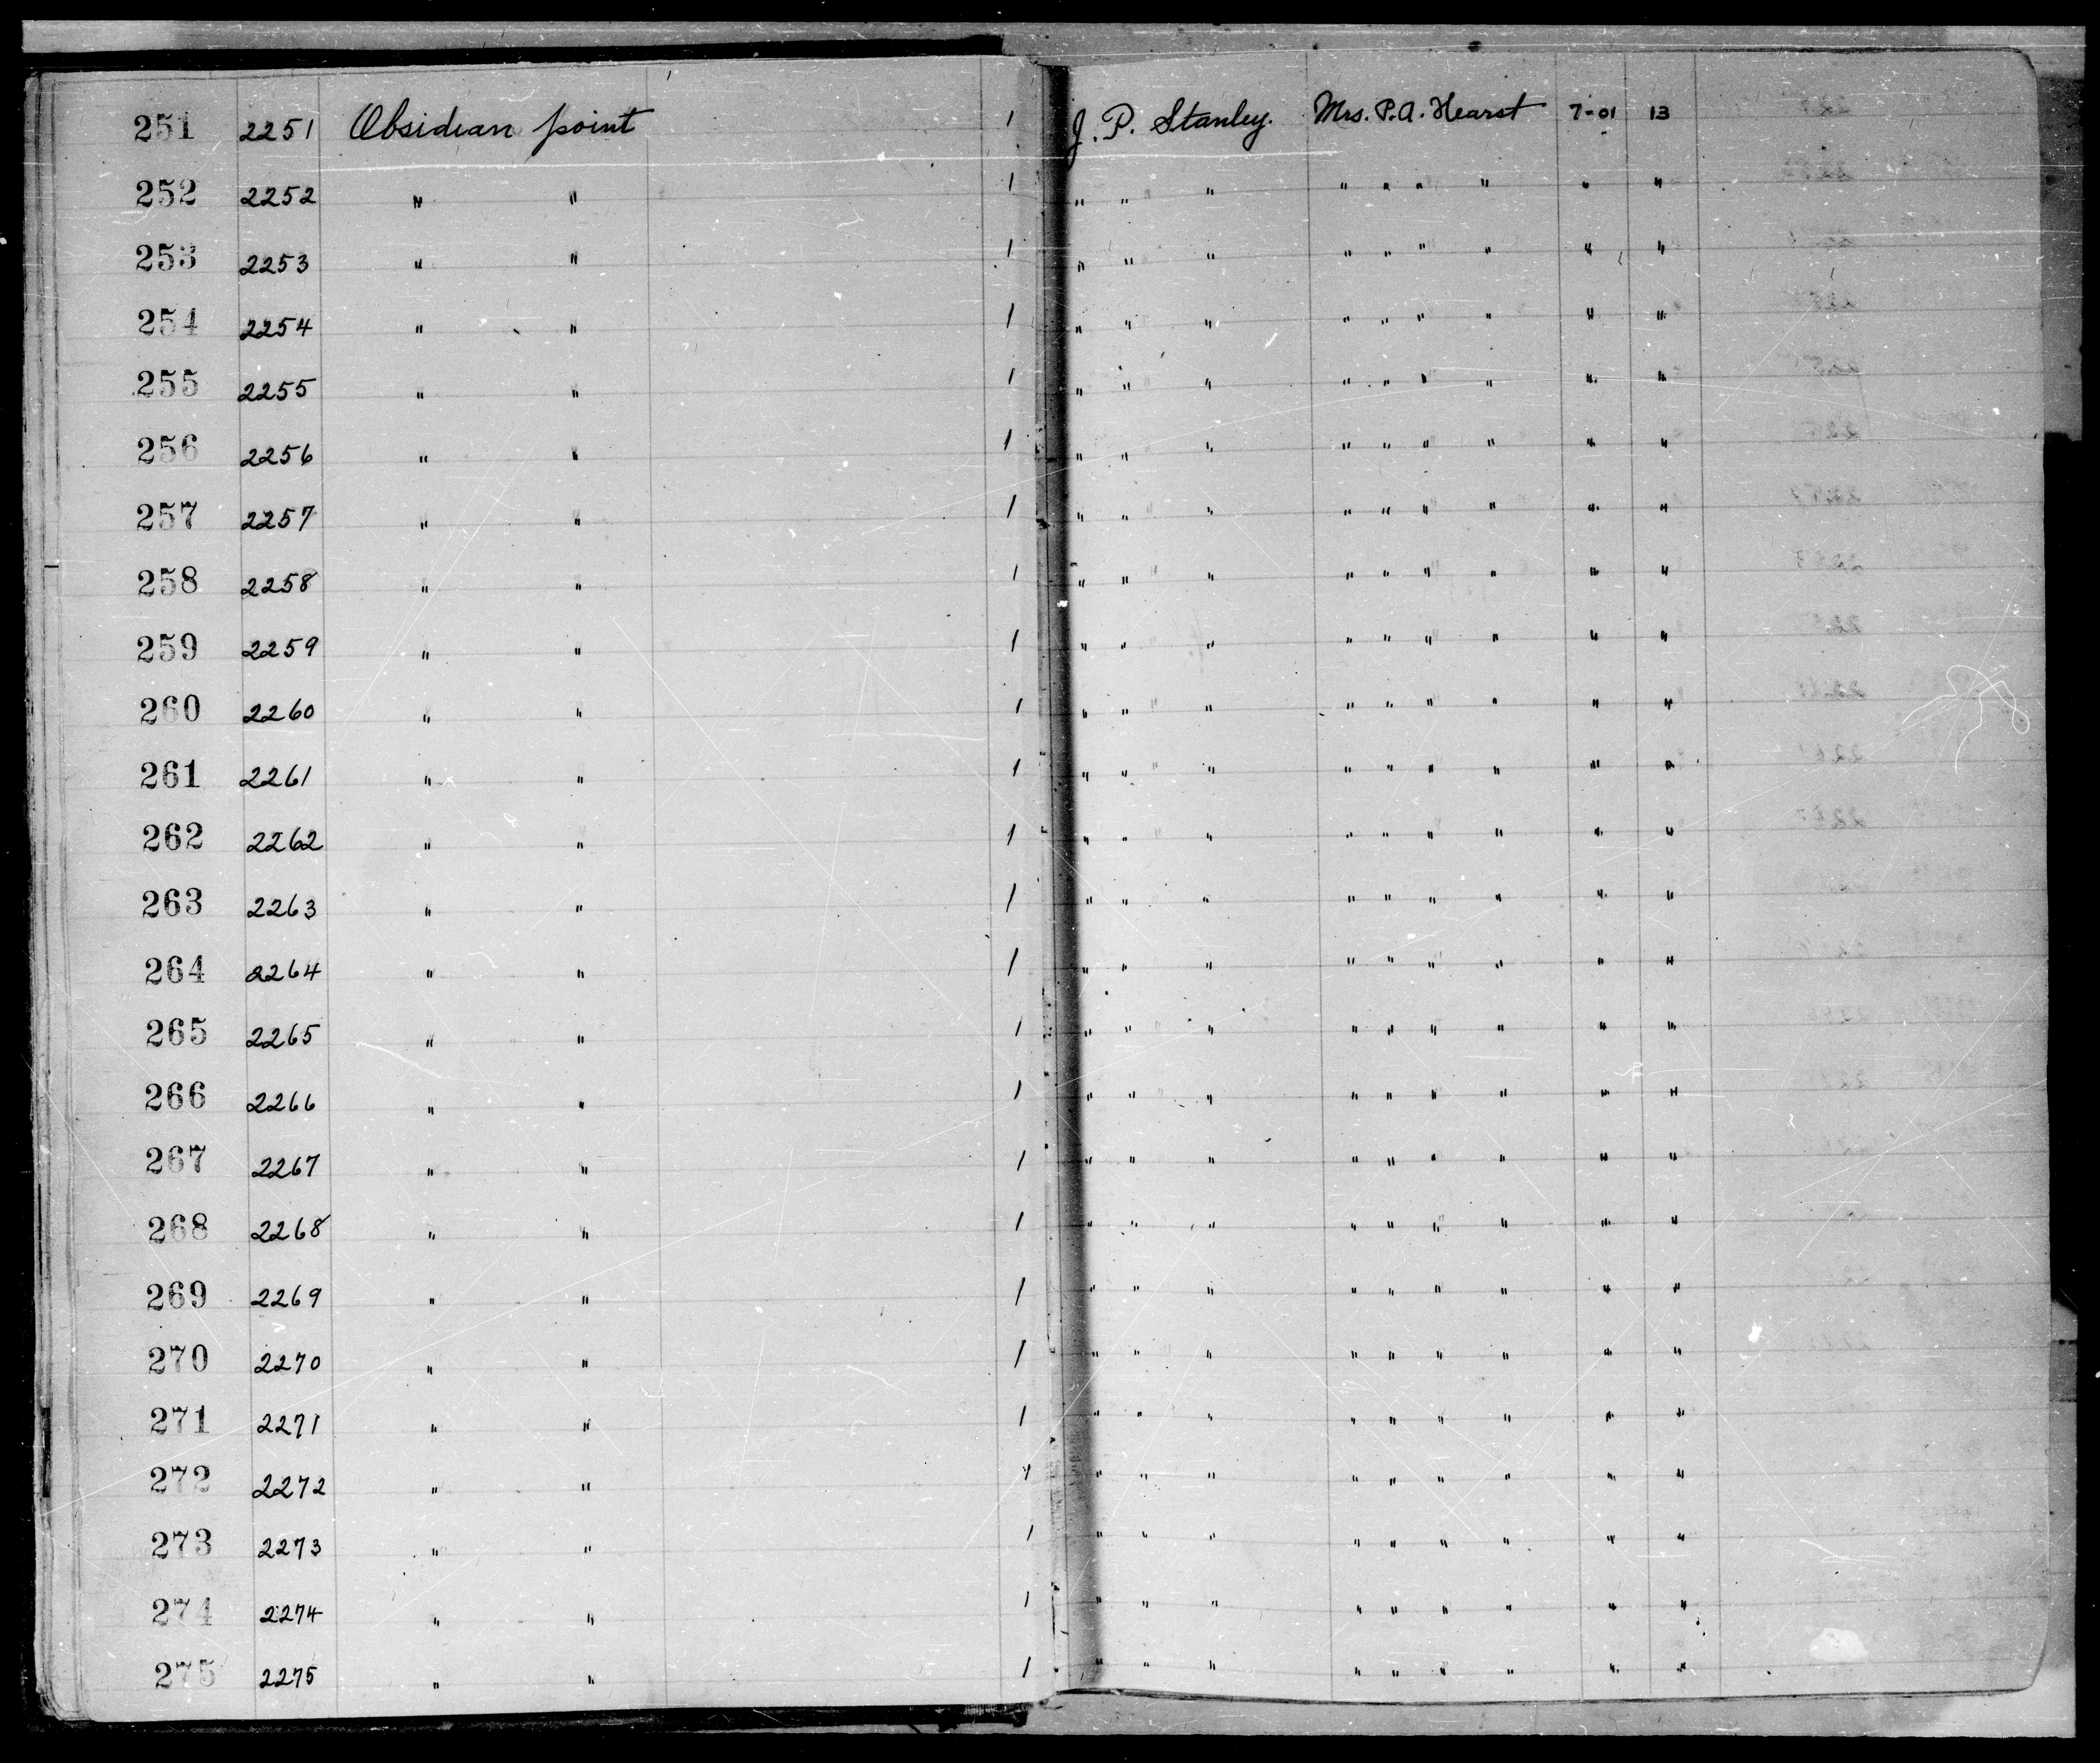 251 2251 Obsidian point 1 J. P. Stanley. Mrs. P. A. Hearst 7-01 13
252 2252 " " 1 " " " " " " " " "
253 2253 " " 1 " " " " " " " " "
254 2254 " " 1 " " " " " " " " "
255 2255 " " 1 " " " " " " " " "
256 2256 " " 1 " " " " " " " " "
257 2257 " " 1 " " " " " " " " "
258 2258 " " 1 " " " " " " " " "
259 2259 " " 1 " " " " " " " " "
260 2260 " " 1 " " " " " " " " "
261 2261 " " 1 " " " " " " " " "
262 2262 " " 1 " " " " " " " " "
263 2263 " " 1 " " " " " " " " "
264 2264 " " 1 " " " " " " " " "
265 2265 " " 1 " " " " " " " " "
266 2266 " " 1 " " " " " " " " "
267 2267 " " 1 " " " " " " " " "
268 2268 " " 1 " " " " " " " " "
269 2269 " " 1 " " " " " " " " "
270 2270 " " 1 " " " " " " " " "
271 2271 " " 1 " " " " " " " " "
272 2272 " " 1 " " " " " " " " "
273 2273 " " 1 " " " " " " " " "
274 2274 " " 1 " " " " " " " " "
275 2275 " " 1 " " " " " " " " "